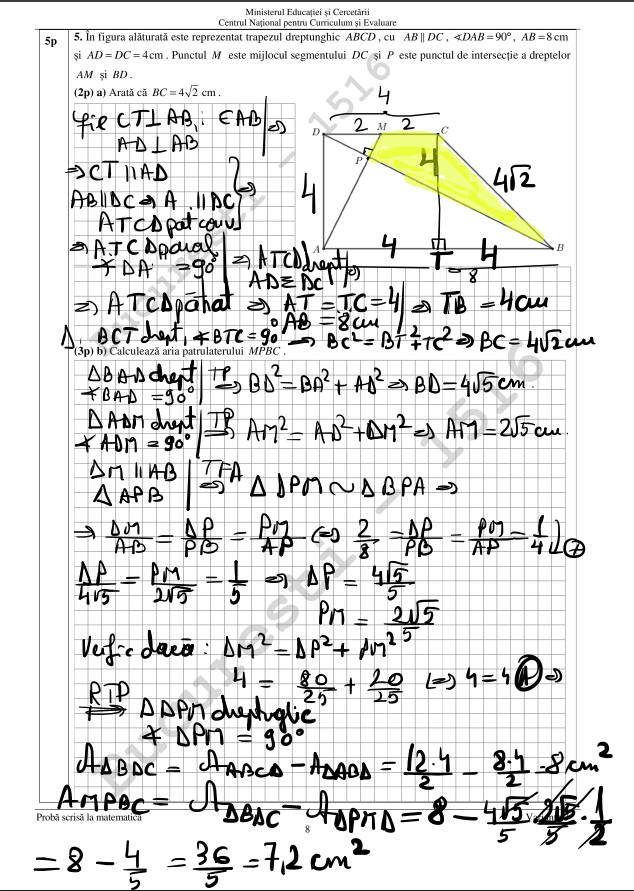 Ministerul Educației și Cercetării
Centrul Național pentru Curriculum și Evaluare
5p
5. În figura alăturată este reprezentat trapezul dreptunghic ABCD, cu AB ∥ DC, ∢DAB = 90°, AB = 8 cm
și AD = DC = 4 cm. Punctul M este mijlocul segmentului DC și P este punctul de intersecție a dreptelor
AM și BD.
(2p) a) Arată că BC = 4√2 cm.
fie CT⊥AB, T∈AB | ⇒
AD⊥AB
⇒ CT ∥ AD
AB∥DC ⇒ A. ∥DC } ⇒
ATCD pat conv
⇒ ATCD paral
∢DA = 90° | ⇒ ATCD drept
AD≡DC | ⇒
⇒ ATCD pătrat ⇒ AT = TC = 4
AB = 8 cm | ⇒ TB = 4 cm
Δ BCT drept, ∢BTC = 90° ⇒ BC² = BT² + TC² ⇒ BC = 4√2 cm
4
2 2
D M C
P
4
4
4√2
A 4 T 4 B
8
(3p) b) Calculează aria patrulaterului MPBC.
ΔBAD drept
∢BAD = 90° | TP ⇒ BD² = BA² + AD² ⇒ BD = 4√5 cm.
ΔADM drept
∢ADM = 90° | TP ⇒ AM² = AD² + DM² ⇒ AM = 2√5 cm.
DM ∥ AB
Δ APB | TFA ⇒ Δ DPM ~ Δ BPA ⇒
⇒ DM/AB = DP/PB = PM/AP ⇔ 2/8 = DP/PB = PM/AP = 1/4 ⇒
DP/4√5 = PM/2√5 = 1/5 ⇒ DP = 4√5/5
PM = 2√5/5
Verific dacă: DM² = DP² + PM²
4 = 80/25 + 20/25 ⇔ 4 = 4 A ⇒
RTP ⇒ Δ DPM dreptunghic
∢ DPM = 90°
A ΔBDC = A ABCD − A DABD = 12·4/2 − 8·4/2 = 8 cm²
A MPBC = A ΔBDC − A DPMD = 8 − 4√5/5 · 2√5/5 · 1/2
Probă scrisă la matematică
8
= 8 − 4/5 = 36/5 = 7,2 cm²
București – 1516
București – 1516